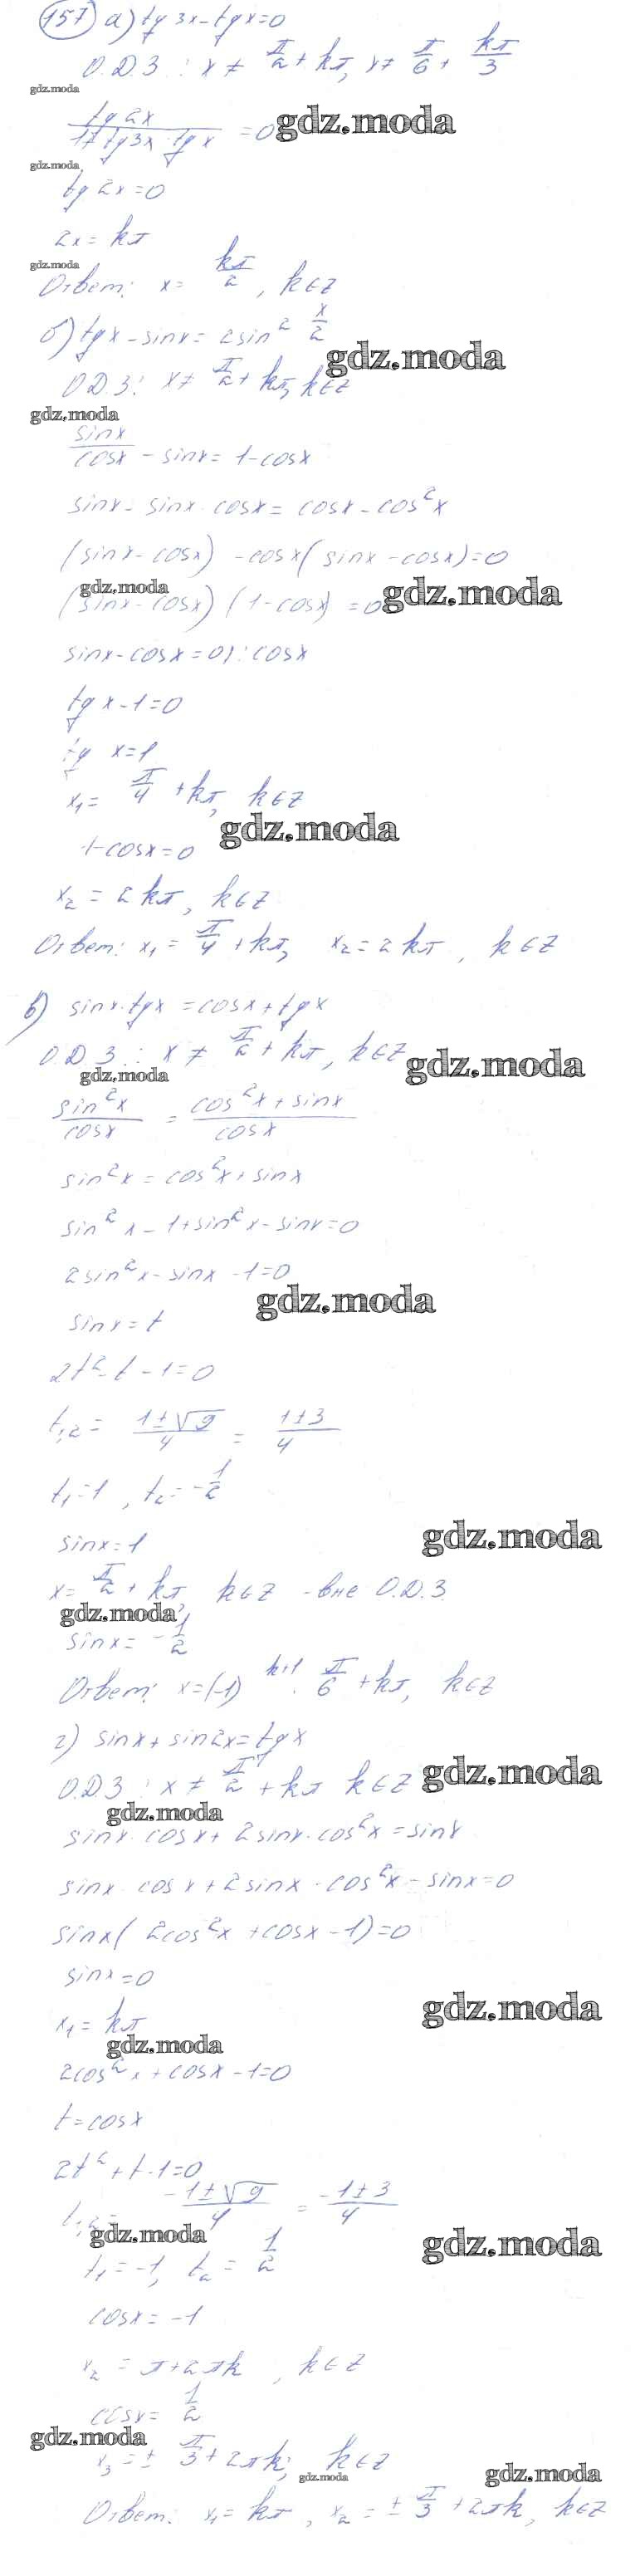 157 а) tg 3x - tg x = 0
О.Д.З : x ≠ π/2 + kπ, x ≠ π/6 + kπ/3
gdz.moda
tg 2x / 1+tg3x·tgx = 0
gdz.moda
gdz.moda
tg 2x = 0
2x = kπ
gdz.moda
Ответ: x = kπ/2, k∈Z
б) tgx - sinx = 2sin² x/2
gdz.moda
О.Д.З: x ≠ π/2 + kπ, k∈Z
gdz.moda
sinx/cosx - sinx = 1 - cosx
sinx - sinx·cosx = cosx - cos²x
(sinx - cosx) - cosx(sinx - cosx) = 0
gdz.moda
gdz.moda
(sinx - cosx)(1 - cosx) = 0
sinx - cosx = 0 | : cosx
tg x - 1 = 0
tg x = 1
x₁ = π/4 + kπ, k∈Z
gdz.moda
1 - cosx = 0
x₂ = 2kπ, k∈Z
Ответ: x₁ = π/4 + kπ, x₂ = 2kπ, k∈Z
в) sinx·tgx = cosx + tgx
О.Д.З : x ≠ π/2 + kπ, k∈Z
gdz.moda
gdz.moda
sin²x/cosx = cos²x + sinx/cosx
sin²x = cos²x + sinx
sin²x - 1 + sin²x - sinx = 0
2sin²x - sinx - 1 = 0
gdz.moda
sinx = t
2t² - t - 1 = 0
t₁,₂ = 1±√9/4 = 1±3/4
t₁ = 1, t₂ = -1/2
gdz.moda
sinx = 1
x = π/2 + kπ, k∈Z - вне О.Д.З
gdz.moda
sinx = -1/2
Ответ: x = (-1)^k+1 · π/6 + kπ, k∈Z
г) sinx + sin2x = tgx
О.Д.З : x ≠ π/2 + kπ k∈Z
gdz.moda
gdz.moda
sinx·cosx + 2sinx·cos²x = sinx
sinx·cosx + 2sinx·cos²x - sinx = 0
sinx(2cos²x + cosx - 1) = 0
sinx = 0
gdz.moda
x₁ = kπ
gdz.moda
2cos²x + cosx - 1 = 0
t = cosx
2t² + t - 1 = 0
t₁,₂ = -1±√9/4 = -1±3/4
gdz.moda
gdz.moda
t₁ = -1, t₂ = 1/2
cosx = -1
x₂ = π + 2πk, k∈Z
cosx = 1/2
gdz.moda
x₃ = ± π/3 + 2πk, k∈Z
gdz.moda
gdz.moda
Ответ: x₁ = kπ, x₂ = ± π/3 + 2πk, k∈Z